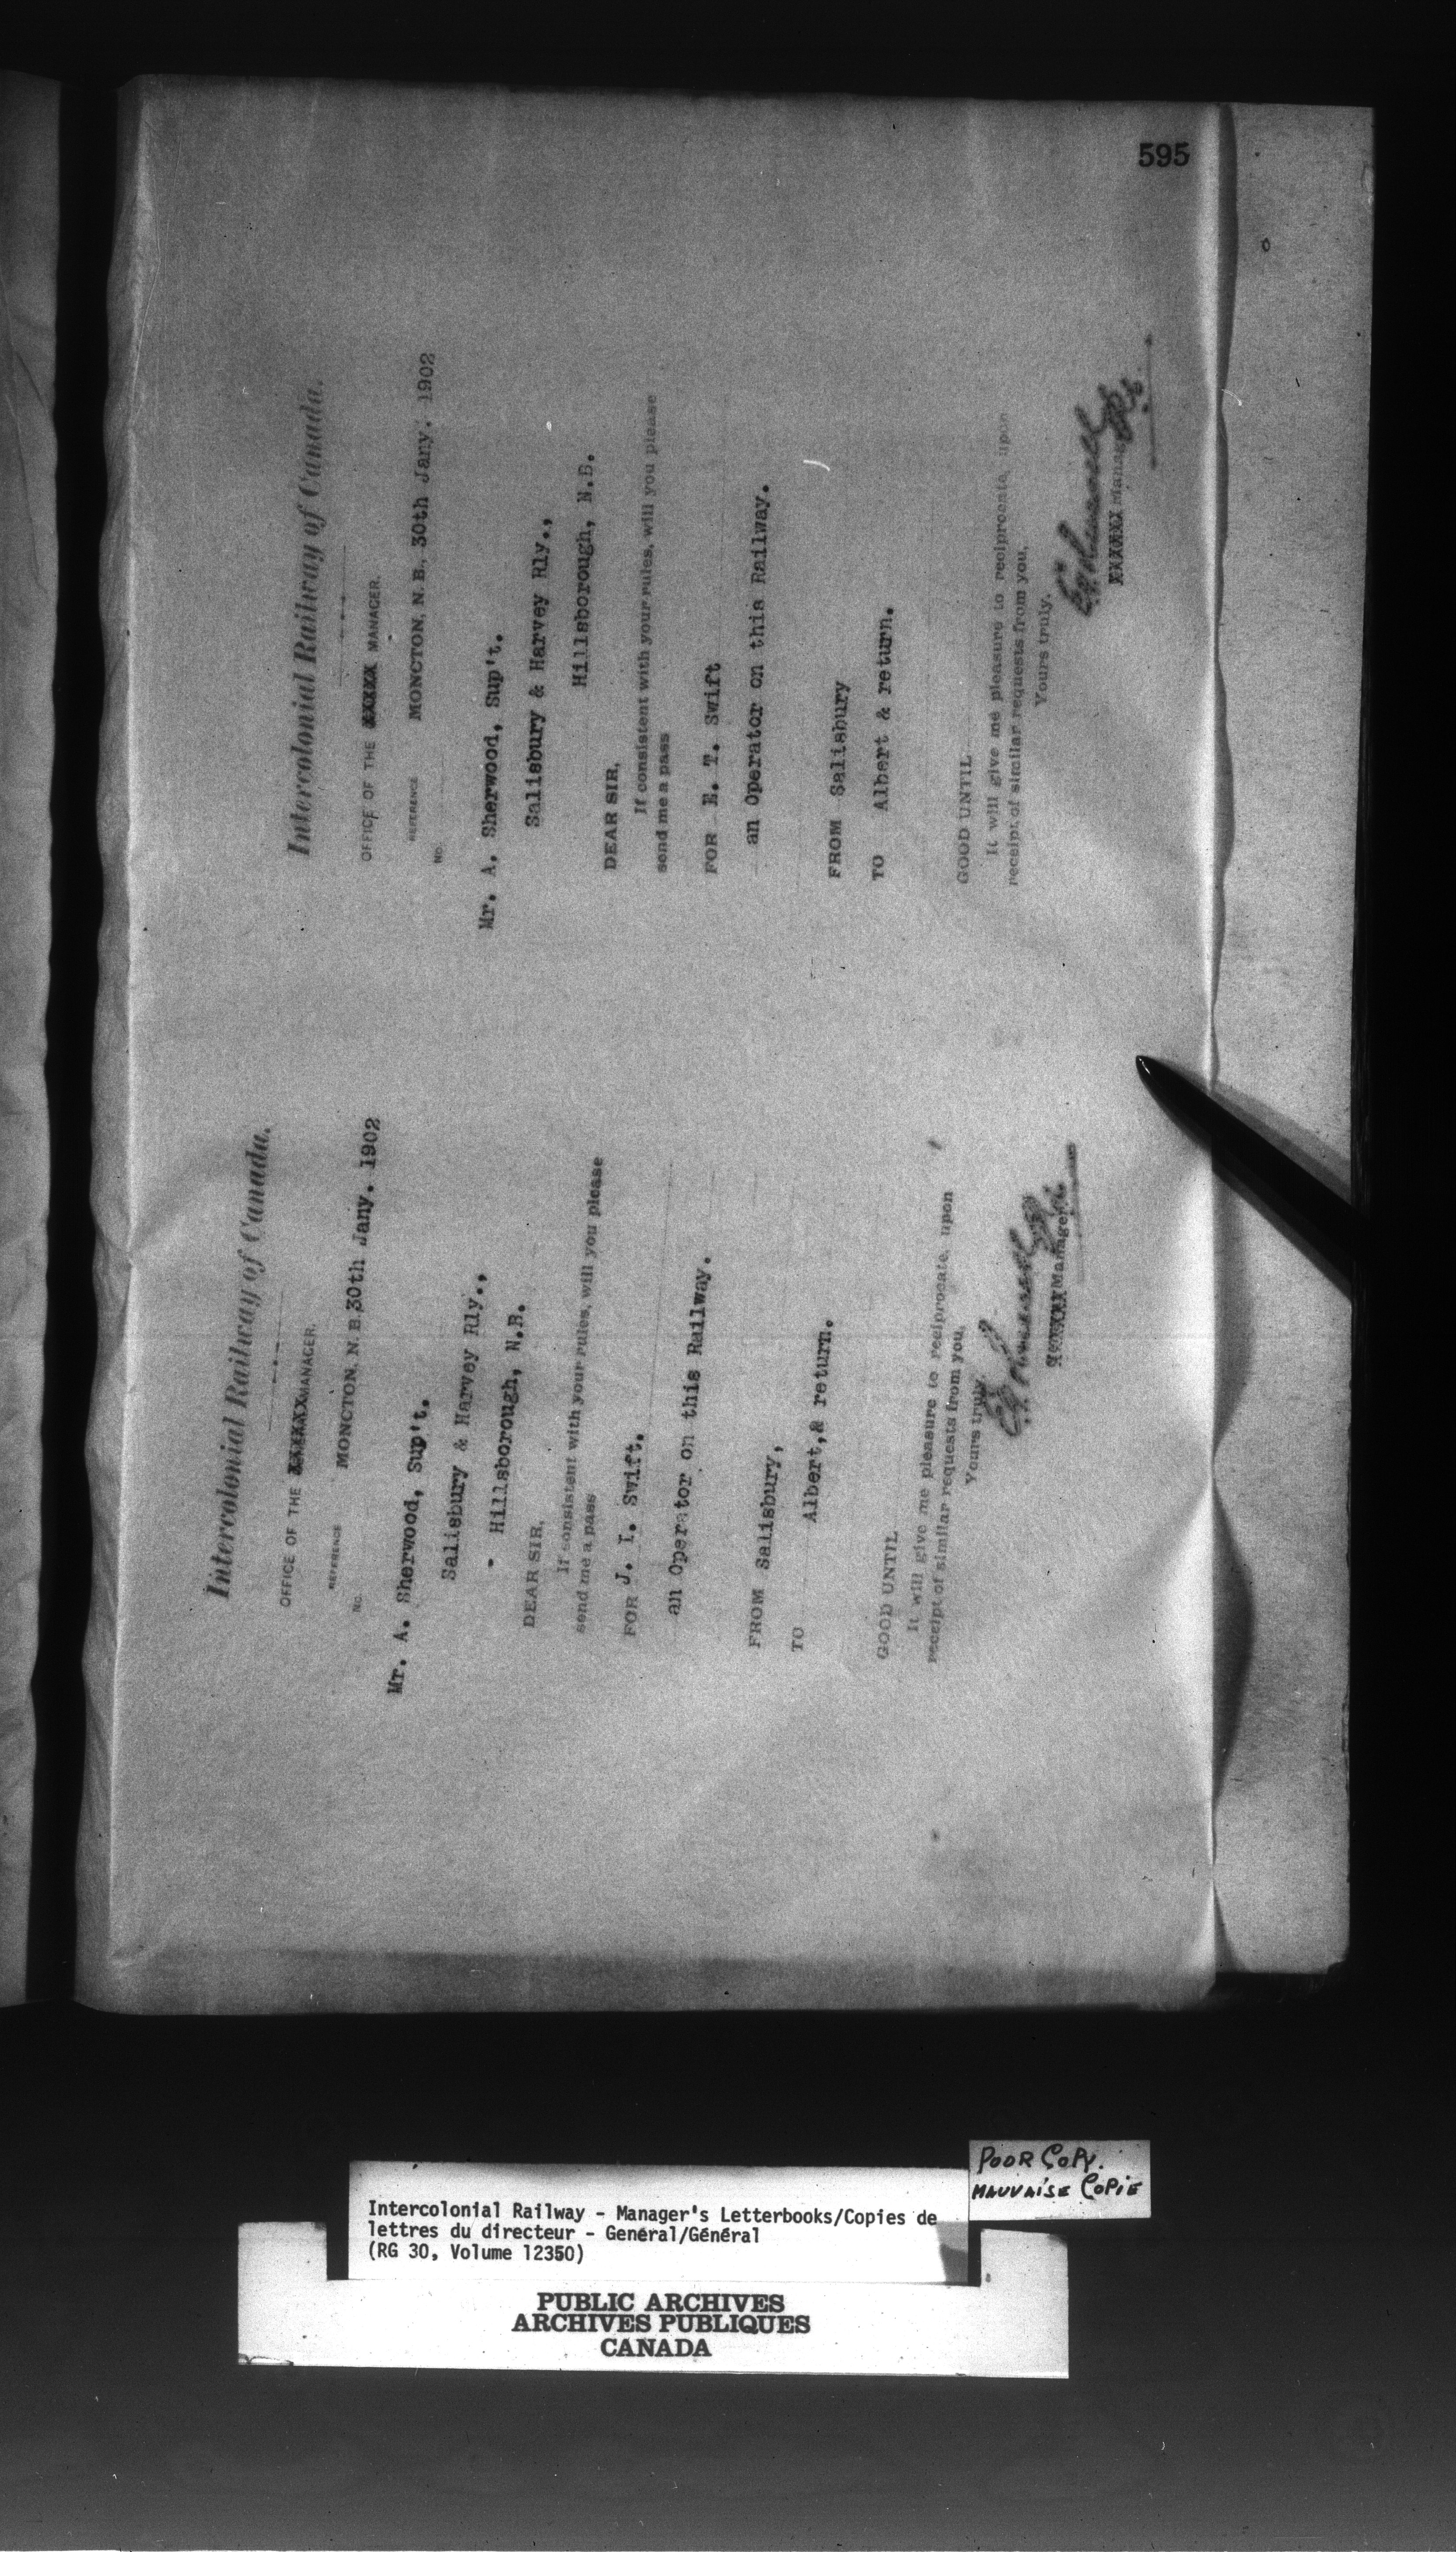 595
Intercolonial Railway of Canada.
OFFICE OF THE XXXXX MANAGER.
REFERENCE
MONCTON, N. B. 30th Jany. 1902
No.
Mr. A. Sherwood, Sup't.
Salisbury & Harvey Rly.,
- Hillsborough, N.B.
DEAR SIR,
If consistent with your rules, will you please
send me a pass
FOR J. I. Swift,
an Operator on this Railway.
FROM Salisbury,
TO Albert,& return.
GOOD UNTIL
It will give me pleasure to reciprocate upon
receipt of similar requests from you,
Yours truly,
Manager.
Intercolonial Railway of Canada.
OFFICE OF THE XXXXX MANAGER.
REFERENCE
MONCTON, N. B., 30th Jany. 1902
No.
Mr. A. Sherwood, Sup't.
Salisbury & Harvey Rly.,
Hillsborough, N.B.
DEAR SIR,
If consistent with your rules, will you please
send me a pass
FOR E. T. Swift
an Operator on this Railway.
FROM Salisbury
TO Albert & return.
GOOD UNTIL
It will give me pleasure to reciprocate upon
receipt of similar requests from you,
Yours truly,
XXXXXX Manager
POOR COPY.
MAUVAISE COPIE
Intercolonial Railway - Manager's Letterbooks/Copies de
lettres du directeur - General/Général
(RG 30, Volume 12350)
PUBLIC ARCHIVES
ARCHIVES PUBLIQUES
CANADA